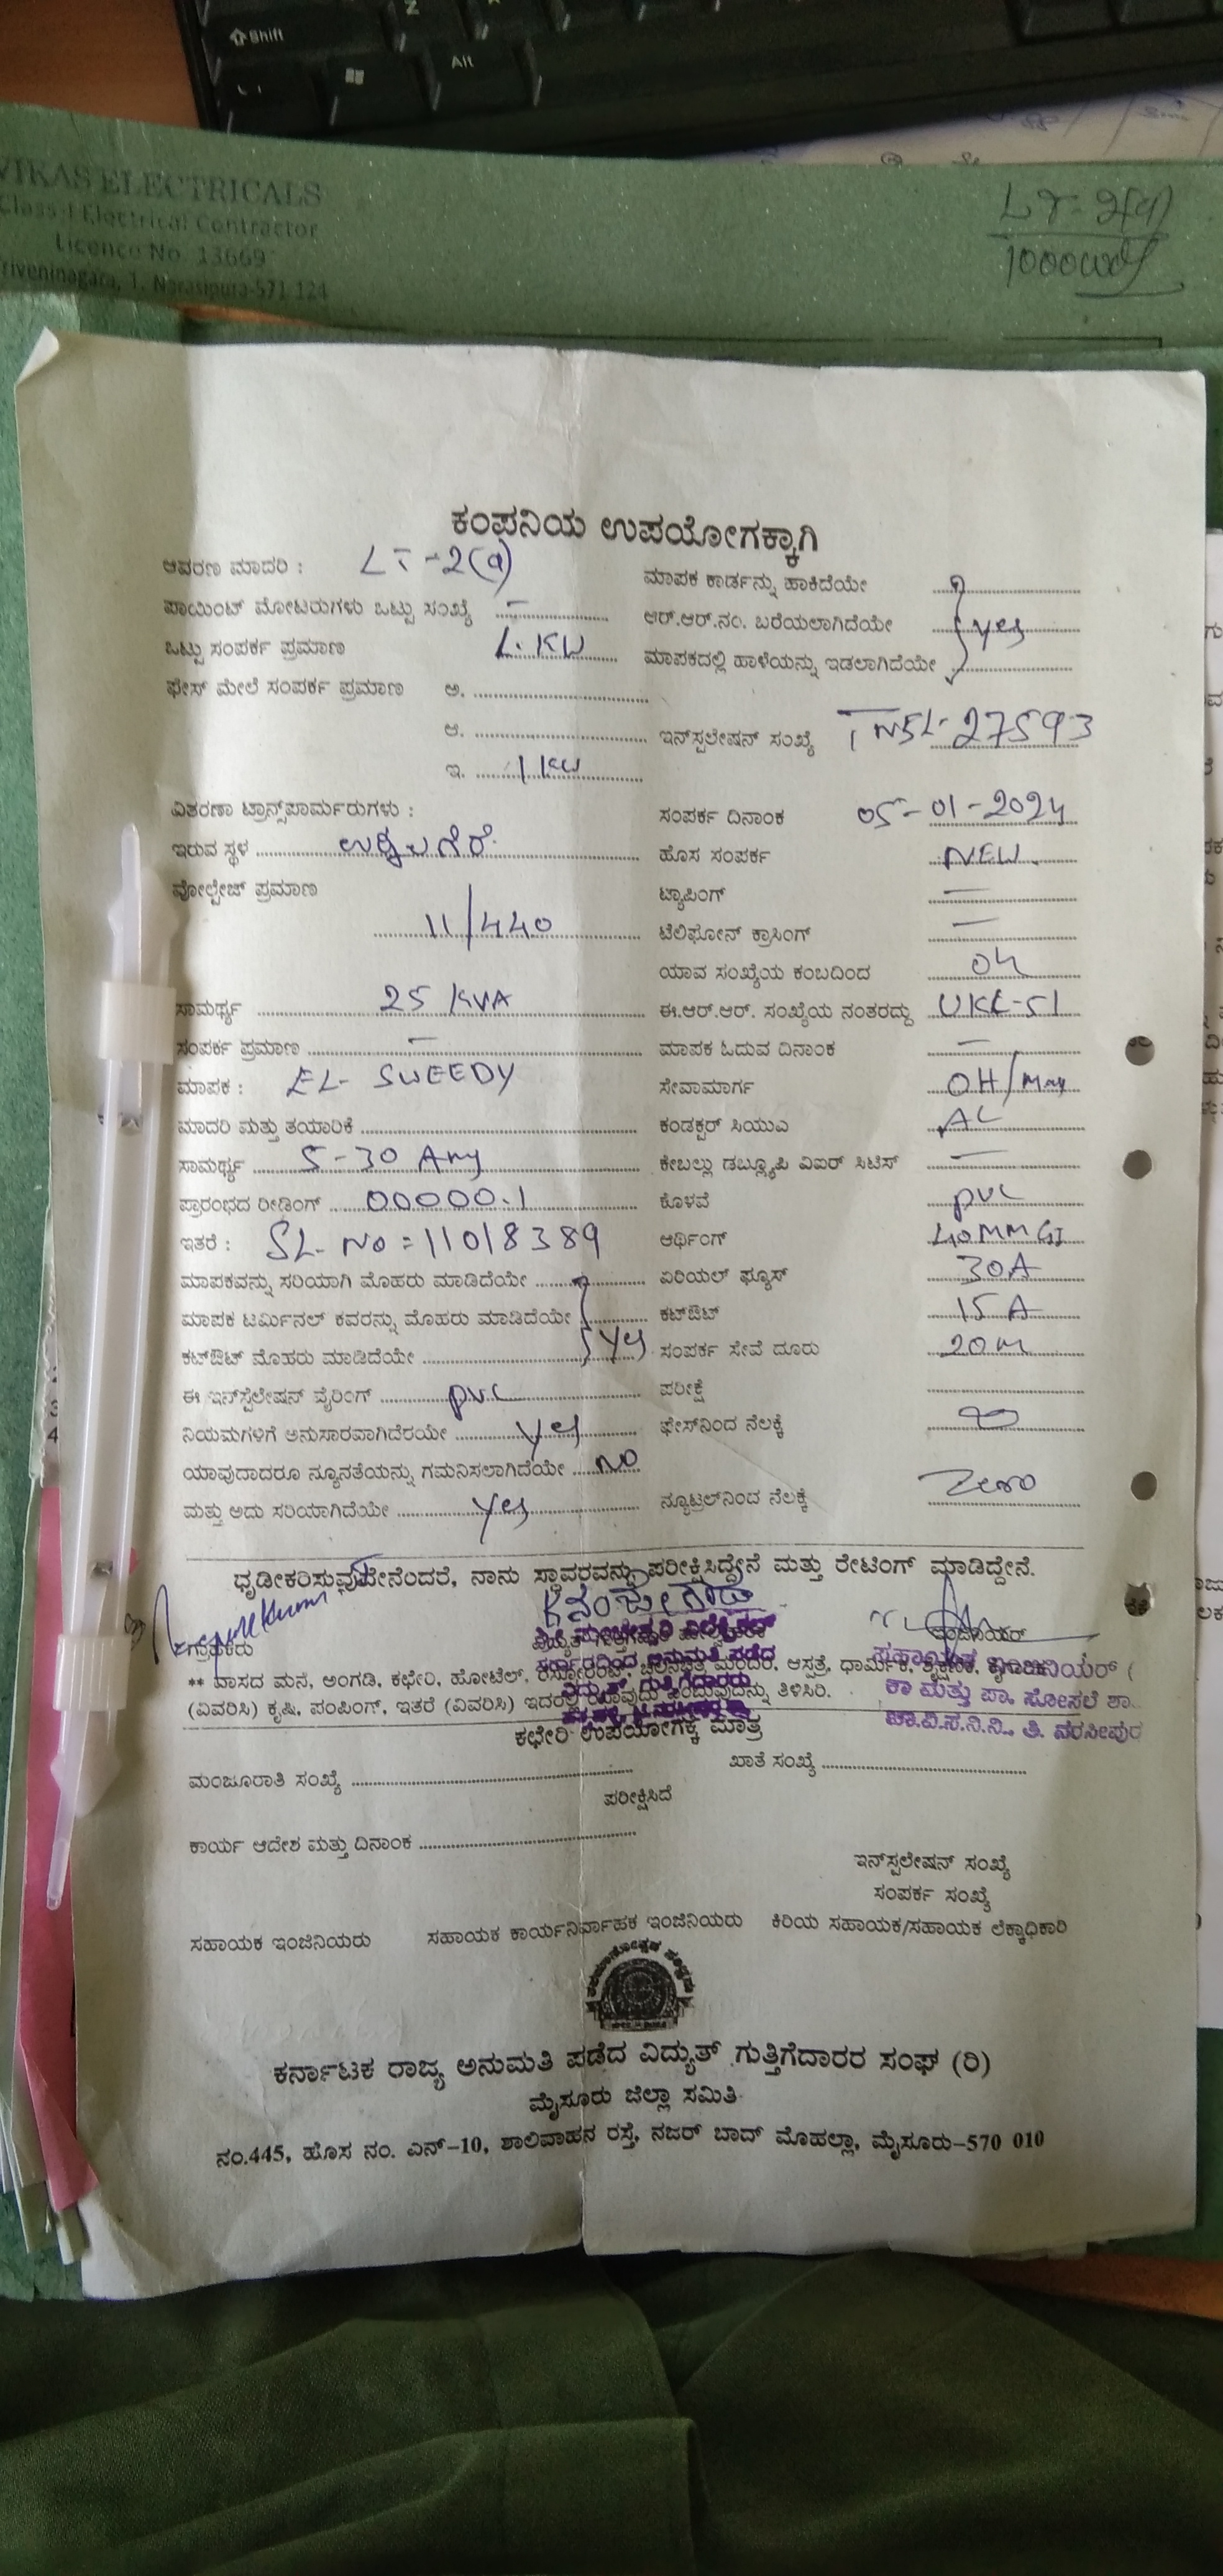 Shift
Z
Alt
VIKAS ELECTRICALS
Class-I Electrical Contractor
Licence No. 13669
Triveninagara, T. Narasipura-571 124
LT-2(a)
1000
ಕಂಪನಿಯ ಉಪಯೋಗಕ್ಕಾಗಿ
ಆವರಣ ಮಾದರಿ : LT-2(a)
ಮಾಪಕ ಕಾರ್ಡನ್ನು ಹಾಕಿದೆಯೇ
ಪಾಯಿಂಟ್ ಮೋಟರುಗಳು ಒಟ್ಟು ಸಂಖ್ಯೆ –
ಆರ್.ಆರ್.ನಂ. ಬರೆಯಲಾಗಿದೆಯೇ yes
ಒಟ್ಟು ಸಂಪರ್ಕ ಪ್ರಮಾಣ 1. KW
ಮಾಪಕದಲ್ಲಿ ಹಾಳೆಯನ್ನು ಇಡಲಾಗಿದೆಯೇ
ಫೇಸ್ ಮೇಲೆ ಸಂಪರ್ಕ ಪ್ರಮಾಣ ಅ.
ಆ.
ಇನ್‌ಸ್ಟಲೇಷನ್ ಸಂಖ್ಯೆ TNSL-27593
ಇ. 1 KW
ವಿತರಣಾ ಟ್ರಾನ್ಸ್‌ಪಾರ್ಮರುಗಳು :
ಸಂಪರ್ಕ ದಿನಾಂಕ 05-01-2024
ಇರುವ ಸ್ಥಳ
ಹೊಸ ಸಂಪರ್ಕ NEW.
ವೋಲ್ಟೇಜ್ ಪ್ರಮಾಣ
ಟ್ಯಾಪಿಂಗ್ –
11/440
ಟೆಲಿಫೋನ್ ಕ್ರಾಸಿಂಗ್ –
ಯಾವ ಸಂಖ್ಯೆಯ ಕಂಬದಿಂದ
ಸಾಮರ್ಥ್ಯ 25 KVA
ಈ.ಆರ್.ಆರ್. ಸಂಖ್ಯೆಯ ನಂತರದ್ದು UKL-51
ಸಂಪರ್ಕ ಪ್ರಮಾಣ –
ಮಾಪಕ ಓದುವ ದಿನಾಂಕ –
ಮಾಪಕ : EL- SWEEDY
ಸೇವಾಮಾರ್ಗ OH/
ಮಾದರಿ ಮತ್ತು ತಯಾರಿಕೆ
ಕಂಡಕ್ಟರ್ ಸಿಯುಎ AL
ಸಾಮರ್ಥ್ಯ 5-30 Amp
ಕೇಬಲ್ಲು ಡಬ್ಲ್ಯೂಪಿ ವಿಐರ್ ಸಿಟಿಸ್ –
ಪ್ರಾರಂಭದ ರೀಡಿಂಗ್ 00000.1
ಕೊಳವೆ pvc
ಇತರೆ : SL- NO = 11018389
ಆರ್ಥಿಂಗ್ 40MM GI
ಮಾಪಕವನ್ನು ಸರಿಯಾಗಿ ಮೊಹರು ಮಾಡಿದೆಯೇ
ಏರಿಯಲ್ ಫ್ಯೂಸ್ 30A
ಮಾಪಕ ಟರ್ಮಿನಲ್ ಕವರನ್ನು ಮೊಹರು ಮಾಡಿದೆಯೇ
ಕಟ್‌ಔಟ್ 15 A
ಕಟ್‌ಔಟ್ ಮೊಹರು ಮಾಡಿದೆಯೇ yes
ಸಂಪರ್ಕ ಸೇವೆ ದೂರು 20m
ಈ ಇನ್‌ಸ್ಟೆಲೇಷನ್ ವೈರಿಂಗ್ pvc
ಪರೀಕ್ಷೆ
ನಿಯಮಗಳಿಗೆ ಅನುಸಾರವಾಗಿದೆರಯೇ yes
ಫೇಸ್‌ನಿಂದ ನೆಲಕ್ಕೆ
ಯಾವುದಾದರೂ ನ್ಯೂನತೆಯನ್ನು ಗಮನಿಸಲಾಗಿದೆಯೇ NO
ಮತ್ತು ಅದು ಸರಿಯಾಗಿದೆಯೇ yes
ನ್ಯೂಟ್ರಲ್‌ನಿಂದ ನೆಲಕ್ಕೆ Zero
ಧೃಡೀಕರಿಸುವುದೇನೆಂದರೆ, ನಾನು ಸ್ಥಾವರವನ್ನು ಪರೀಕ್ಷಿಸಿದ್ದೇನೆ ಮತ್ತು ರೇಟಿಂಗ್ ಮಾಡಿದ್ದೇನೆ.
ಗ್ರಾಹಕರು
** ವಾಸದ ಮನೆ, ಅಂಗಡಿ, ಕಛೇರಿ, ಹೋಟೆಲ್, ರೆಸ್ಟೋರೆಂಟ್, ಚಲನಚಿತ್ರ ಮಂದಿರ, ಆಸ್ಪತ್ರೆ, ಧಾರ್ಮಿಕ, ಶೈಕ್ಷಣಿಕ, ಕೈಗಾರಿಕಾ
(ವಿವರಿಸಿ) ಕೃಷಿ, ಪಂಪಿಂಗ್, ಇತರೆ (ವಿವರಿಸಿ) ಇದರಲ್ಲಿ ಯಾವುದು ಎಂಬುವುದನ್ನು ತಿಳಿಸಿರಿ.
ಸಹಾಯಕ ಇಂಜಿನಿಯರ್ (
ಕಾ ಮತ್ತು ಪಾ, ಸೋಸಲೆ ಶಾ..
ಚಾ.ವಿ.ಸ.ನಿ.ನಿ., ತಿ. ನರಸೀಪುರ
ಕಛೇರಿ ಉಪಯೋಗಕ್ಕೆ ಮಾತ್ರ
ಮಂಜೂರಾತಿ ಸಂಖ್ಯೆ
ಖಾತೆ ಸಂಖ್ಯೆ
ಪರೀಕ್ಷಿಸಿದೆ
ಕಾರ್ಯ ಆದೇಶ ಮತ್ತು ದಿನಾಂಕ
ಇನ್‌ಸ್ಪಲೇಷನ್ ಸಂಖ್ಯೆ
ಸಂಪರ್ಕ ಸಂಖ್ಯೆ
ಸಹಾಯಕ ಇಂಜಿನಿಯರು
ಸಹಾಯಕ ಕಾರ್ಯನಿರ್ವಾಹಕ ಇಂಜಿನಿಯರು
ಕಿರಿಯ ಸಹಾಯಕ/ಸಹಾಯಕ ಲೆಕ್ಕಾಧಿಕಾರಿ
ಕರ್ನಾಟಕ ರಾಜ್ಯ ಅನುಮತಿ ಪಡೆದ ವಿದ್ಯುತ್ ಗುತ್ತಿಗೆದಾರರ ಸಂಘ (ರಿ)
ಮೈಸೂರು ಜಿಲ್ಲಾ ಸಮಿತಿ
ನಂ.445, ಹೊಸ ನಂ. ಎನ್-10, ಶಾಲಿವಾಹನ ರಸ್ತೆ, ನಜರ್ ಬಾದ್ ಮೊಹಲ್ಲಾ, ಮೈಸೂರು-570 010